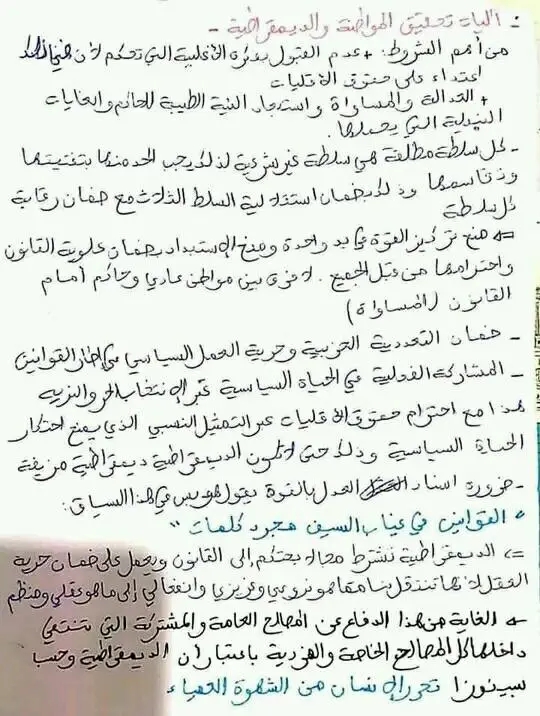 : آليات تحقيق المواطنة والديمقراطية -
من أهم الشروط: + عدم القبول بفكرة الأغلبية التي تحكم لأن في ذلك
اعتداء على حقوق الأقليات
+ العدالة والمساواة واستبعاد النية الطيبة للحاكم والغايات
النبيلة التي يحملها.
- كل سلطة مطلقة هي سلطة غير شرعية لذلك يجب الحد منها بتفتيتها
وتقاسمها وذلك بضمان استقلالية السلط الثلاث مع ضمان رقابة
كل سلطة
=> منع تركيز القوة في يد واحدة ومنع الاستبداد بضمان علوية القانون
واحترامها من قبل الجميع. لا فرق بين مواطن عادي وحاكم أمام
القانون (المساواة)
- ضمان التعددية الحزبية وحرية العمل السياسي في إطار القوانين
- المشاركة الفعلية في الحياة السياسية عبر الانتخاب الحر والنزيه
هذا مع احترام حقوق الأقليات عبر التمثيل النسبي الذي يمنع احتكار
الحياة السياسية وذلك حتى لا تكون الديمقراطية ديمقراطية مزيفة
- ضرورة اسناد العدل بالقوة يقول هوبس في هذا السياق:
" القوانين في غياب السيف مجرد كلمات "
=> الديمقراطية تشترط مجالا يحتكم إلى القانون ويعمل على ضمان حرية
العقل لأنها تنتقل بنا مما هو نزوعي وغريزي وانفعالي إلى ما هو عقلي ومنظم
+ الغاية من هذا الدفاع عن المصالح العامة والمشتركة التي تنتفي
داخلها كل المصالح الخاصة والفردية باعتبار أن الديمقراطية وحسب
سبينوزا تحرر الإنسان من الشهوة العمياء